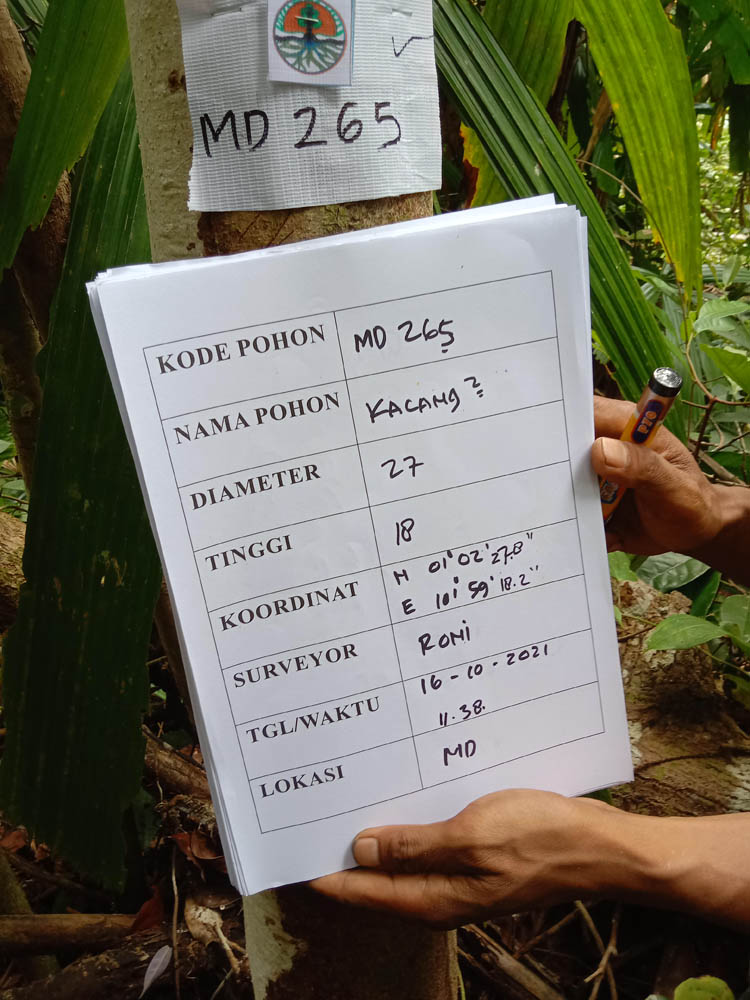 MD 265
KODE POHON MD 265
NAMA POHON KACANG ?
DIAMETER 27
TINGGI 18
KOORDINAT N 01' 02' 27.8"
E 101' 59' 18.2"
SURVEYOR RONI
TGL/WAKTU 16-10-2021
11.38.
LOKASI MD